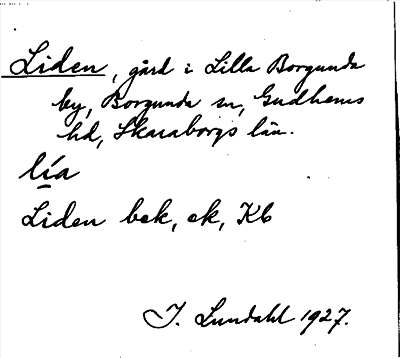 Liden, gård i Lilla Borgunda
by, Borgunda sn, Gudhems
hd, Skaraborgs län.
lía
Liden bek, ek, Kb
I. Lundahl 1927.